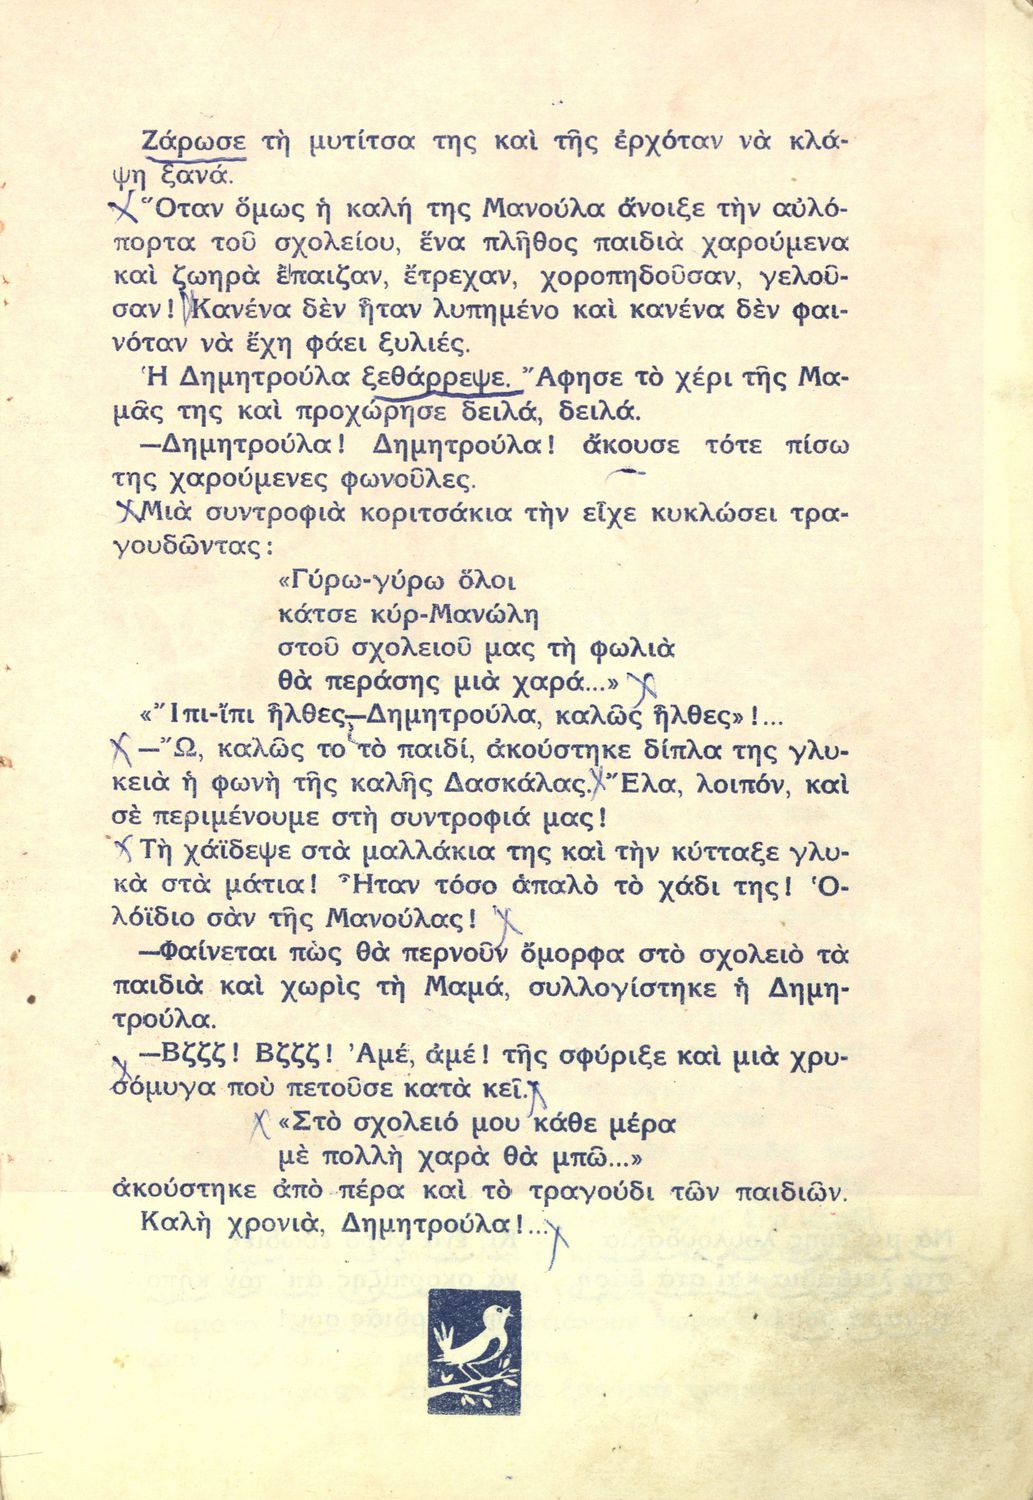 Ζάρωσε τὴ μυτίτσα της καὶ τῆς ἐρχόταν νὰ κλά-
ψη ξανά.
Ὅταν ὅμως ἡ καλή της Μανούλα ἄνοιξε τὴν αὐλό-
πορτα τοῦ σχολείου, ἕνα πλῆθος παιδιὰ χαρούμενα
καὶ ζωηρὰ ἔπαιζαν, ἔτρεχαν, χοροπηδοῦσαν, γελοῦ-
σαν! Κανένα δὲν ἦταν λυπημένο καὶ κανένα δὲν φαι-
νόταν νὰ ἔχη φάει ξυλιές.
Ἡ Δημητρούλα ξεθάρρεψε. Ἄφησε τὸ χέρι τῆς Μα-
μᾶς της καὶ προχώρησε δειλά, δειλά.
—Δημητρούλα! Δημητρούλα! ἄκουσε τότε πίσω
της χαρούμενες φωνοῦλες.
Μιὰ συντροφιὰ κοριτσάκια τὴν εἶχε κυκλώσει τρα-
γουδῶντας:
«Γύρω-γύρω ὅλοι
κάτσε κύρ-Μανώλη
στοῦ σχολειοῦ μας τὴ φωλιὰ
θὰ περάσης μιὰ χαρά...»
«Ἴπι-ἴπι ἦλθες—Δημητρούλα, καλῶς ἦλθες»!...
—Ὦ, καλῶς το τὸ παιδί, ἀκούστηκε δίπλα της γλυ-
κειὰ ἡ φωνὴ τῆς καλῆς Δασκάλας. Ἔλα, λοιπόν, καὶ
σὲ περιμένουμε στὴ συντροφιά μας!
Τὴ χάϊδεψε στὰ μαλλάκια της καὶ τὴν κύτταξε γλυ-
κὰ στὰ μάτια! Ἦταν τόσο ἁπαλὸ τὸ χάδι της! Ὁ-
λόϊδιο σὰν τῆς Μανούλας!
—Φαίνεται πὼς θὰ περνοῦν ὄμορφα στὸ σχολειὸ τὰ
παιδιὰ καὶ χωρὶς τὴ Μαμά, συλλογίστηκε ἡ Δημη-
τρούλα.
—Βζζζ! Βζζζ! Ἀμέ, ἀμέ! τῆς σφύριξε καὶ μιὰ χρυ-
σόμυγα ποὺ πετοῦσε κατὰ κεῖ.
«Στὸ σχολειό μου κάθε μέρα
μὲ πολλὴ χαρὰ θὰ μπῶ...»
ἀκούστηκε ἀπὸ πέρα καὶ τὸ τραγούδι τῶν παιδιῶν.
Καλὴ χρονιά, Δημητρούλα!...